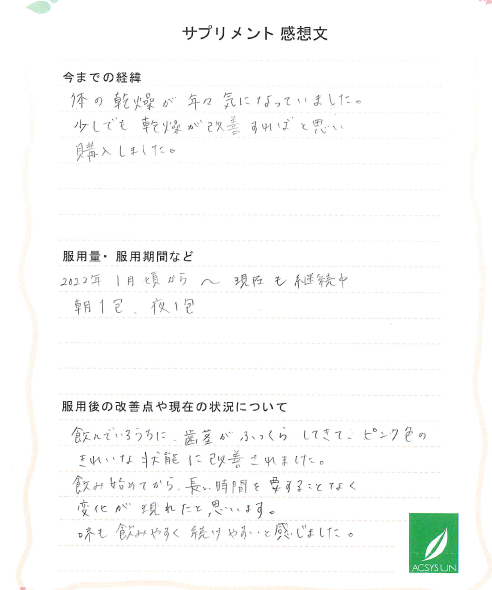 サプリメント 感想文
今までの経緯
体の乾燥が年々気になっていました。
少しでも乾燥が改善すればと思い
購入しました。
服用量・服用期間など
2022年1月頃から〜現在も継続中
朝1包、夜1包
服用後の改善点や現在の状況について
飲んでいるうちに、歯茎がふっくらしてきて、ピンク色の
きれいな状態に改善されました。
飲み始めてから、長い時間を要することなく
変化が現れたと思います。
味も飲みやすく続けやすいと感じました。
ACSYSUN